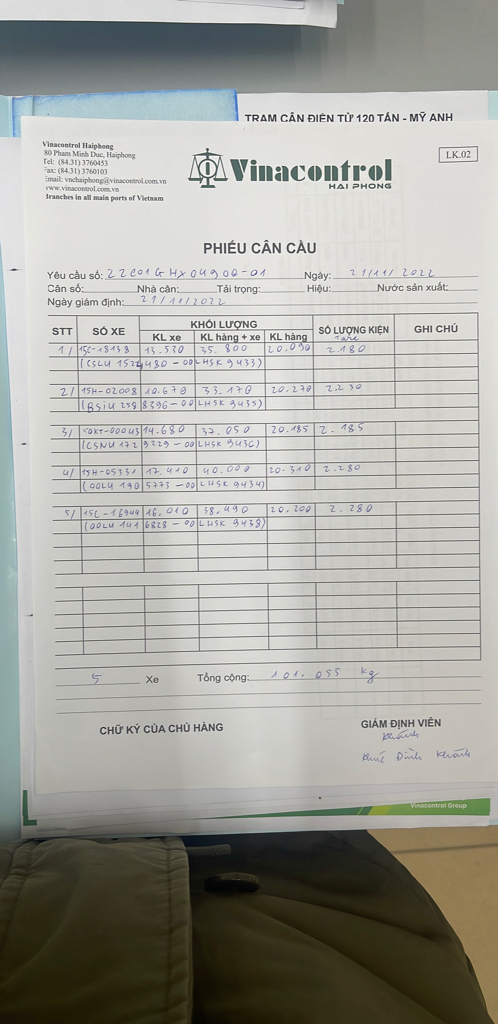 TRẠM CÂN ĐIỆN TỬ 120 TẤN - MỸ ANH
Vinacontrol Haiphong
80 Pham Minh Duc, Haiphong
Tel: (84.31) 3760453
Fax: (84.31) 3760103
Email: vnchaiphong@vinacontrol.com.vn
www.vinacontrol.com.vn
Branches in all main ports of Vietnam
Vinacontrol
HAI PHONG
LK.02
PHIẾU CÂN CẦU
Yêu cầu số: 22E01GHX04900-01 Ngày: 21/11/2022
Cân số: Nhà cân: Tải trọng: Hiệu: Nước sản xuất:
Ngày giám định: 21/11/2022
STT SỐ XE KHỐI LƯỢNG SỐ LƯỢNG KIỆN GHI CHÚ
KL xe KL hàng + xe KL hàng Tare
1/ 15C-18138 13.530 35.800 20.090 2.180
(CSLU 1522480-00 LHSK 9433)
2/ 15H-02008 10.670 33.170 20.270 2.230
(BSIU 2598396-00 LHSK 9435)
3/ 14.680 37.050 20.185 2.185
(CSNU 1729229-00 LHSK 9436)
4/ 15H-05331 17.410 40.000 20.310 2.280
(OOLU 1905773-00 LHSK 9434)
5/ 15C-16944 16.010 38.490 20.200 2.280
(OOLU 1416828-00 LHSK 9438)
5 Xe Tổng cộng: 101.055 kg
CHỮ KÝ CỦA CHỦ HÀNG GIÁM ĐỊNH VIÊN
Khánh
Khúc Đình Khánh
Vinacontrol Group